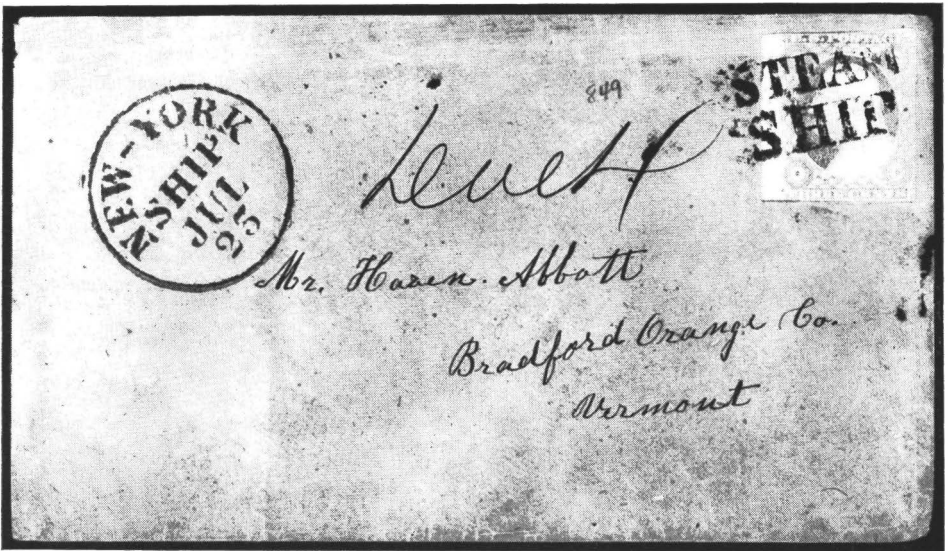 NEW-YORK
SHIP
JUL
25
Due 4
849
STEAM
SHIP
Mr. Hazen. Abbott
Bradford Orange Co.
Vermont